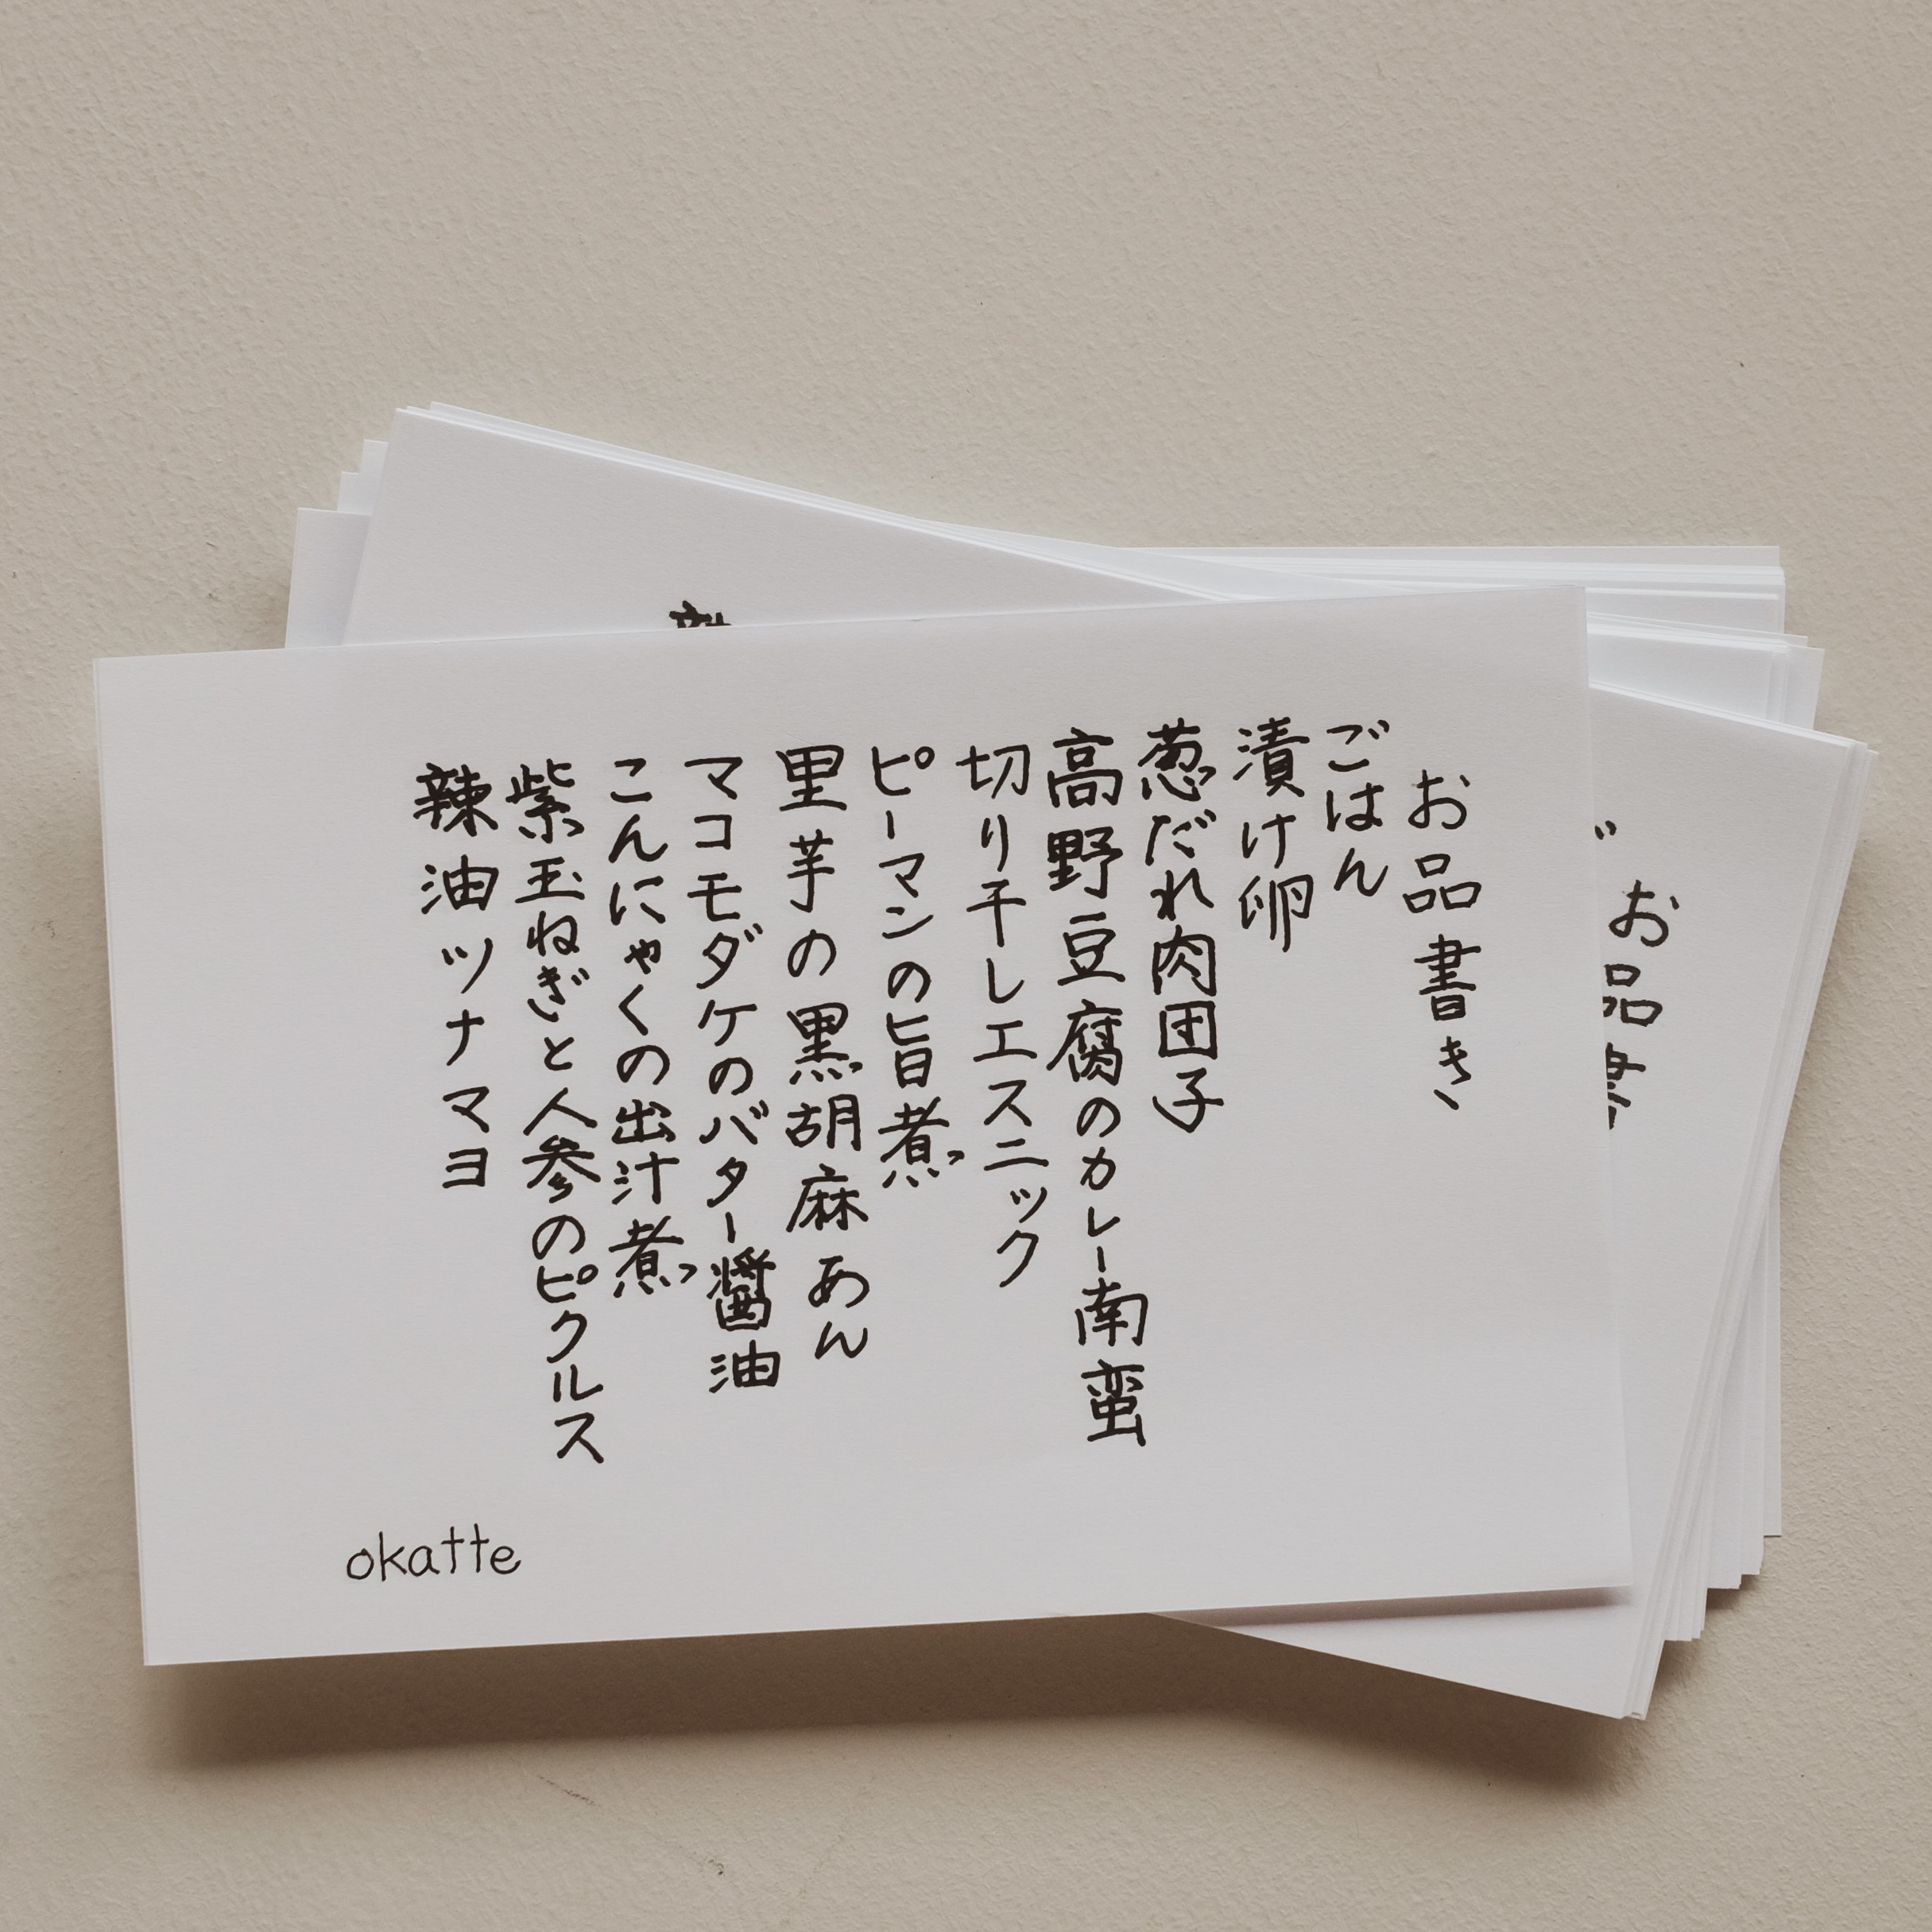 お品書き
ごはん
漬け卵
葱だれ肉団子
高野豆腐のカレー南蛮
切り干しエスニック
ピーマンの旨煮
里芋の黒胡麻あん
マコモダケのバター醤油
こんにゃくの出汁煮
紫玉ねぎと人参のピクルス
辣油ツナマヨ
okatte
お品書